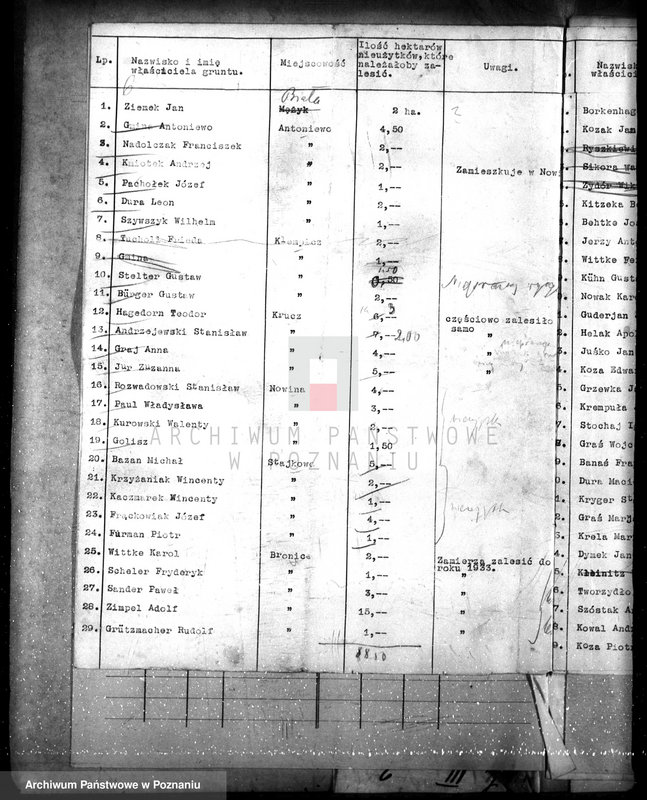 Lp. Nazwisko i imię właściciela gruntu. Miejscowość Ilość hektarów nieużytków, które należałoby zalesić. Uwagi.
1. Ziemek Jan Biała 2 ha.
2. Gmina Antoniewo Antoniewo 4,50
3. Nadolczak Franciszek " 2,--
4. Kniotek Andrzej " 2,-- Zamieszkuje w Now
5. Pachołek Józef " 1,--
6. Dura Leon " 2,--
7. Szywszyk Wilhelm " 1,--
8. Tucholi Frieda Klempicz 2,--
9. Gmina " 1,--
10. Stelter Gustaw "
11. Bürger Gustaw " 2,--
12. Hagedorn Teodor Krucz 6,-- 3 częściowo zalesiło
13. Andrzejewski Stanisław " 7,-- 2,00 samo "
14. Graj Anna " 4,-- "
15. Jur Zuzanna " 5,-- "
16. Rozwadowski Stanisław Nowina 4,--
17. Paul Władysława " 3,--
18. Kurowski Walenty " 2,--
19. Golisz " 1,50
20. Bazan Michał Stajkowo 5,--
21. Krzyżaniak Wincenty " 2,--
22. Kaczmarek Wincenty " 1,--
23. Frąckowiak Józef " 4,--
24. Furman Piotr " 1,--
25. Wittke Karol Bronice 2,-- Zamierza zalesić do roku 1933.
26. Scheler Fryderyk " 1,-- "
27. Sander Paweł " 3,-- "
28. Zimpel Adolf " 15,-- "
29. Grützmacher Rudolf " 1,-- "
Nazwisk
właścici
Borkenhag
Kozak Jan
Ryszkiewi
Sikora Wa
Zydór Wik
Kitzeka B
Behtke Jo
Jerzy Ant
Wittke Fe
Kühn Gust
Nowak Kar
Guderjan
Helak Apol
Juśko Jan
Koza Edwa
Grzewka J
Krempuła
Stochaj I
Graś Wojc
Banaś Fra
Dura Maci
Kryger St
Graś Marj
Krela Mar
Dymek Jan
Kleinitz
Tworzydło
Szóstak A
Kowal Andr
Koza Piotr
ARCHIWUM PAŃSTWOWE
W POZNANIU
Archiwum Państwowe w Poznaniu